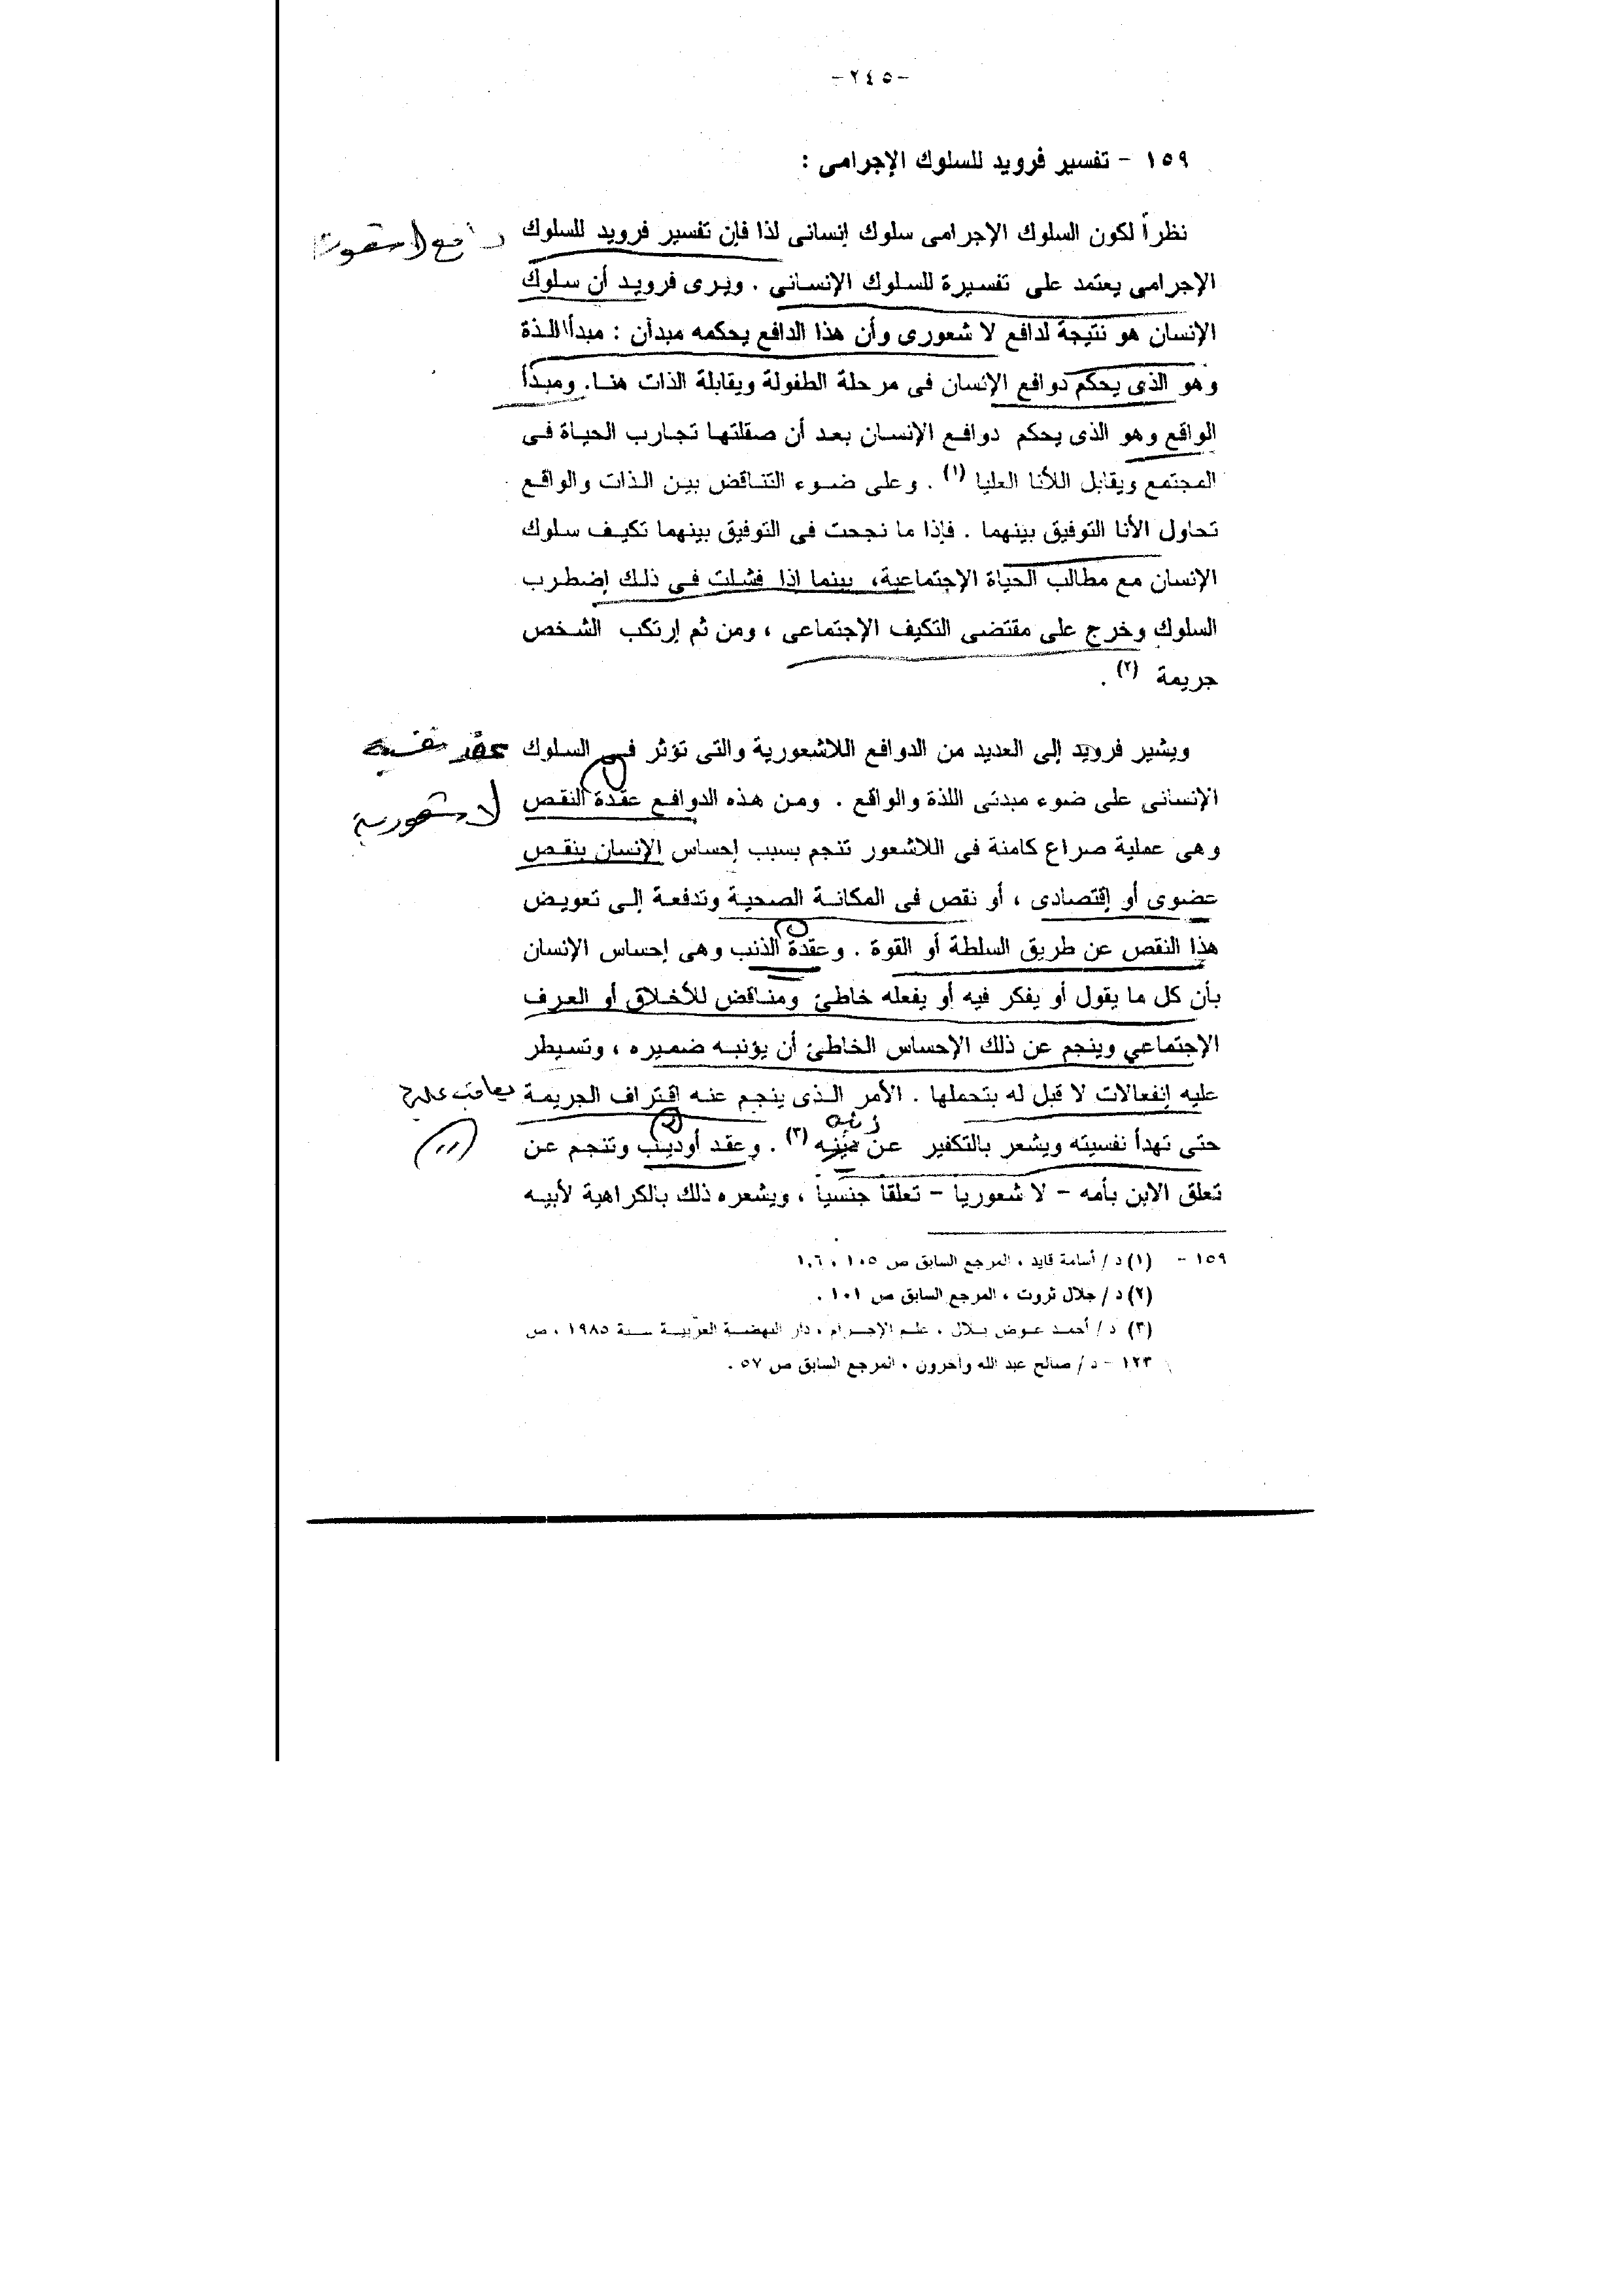 -٢٤٥-
١٥٩ - تفسير فرويد للسلوك الإجرامى :
نظراً لكون السلوك الإجرامى سلوك إنسانى لذا فإن تفسير فرويد للسلوك
الإجرامى يعتمد على تفسيرة للسلوك الإنسانى . ويرى فرويد أن سلوك
الإنسان هو نتيجة لدافع لا شعورى وأن هذا الدافع يحكمه مبدآن : مبدأ اللذة
وهو الذى يحكم دوافع الإنسان فى مرحلة الطفولة ويقابلة الذات هنا. ومبدأ
الواقع وهو الذى يحكم دوافع الإنسان بعد أن صقلتها تجارب الحياة فى
المجتمع ويقابل اللأنا العليا (١) . وعلى ضوء التناقض بين الذات والواقع
تحاول الأنا التوفيق بينهما . فإذا ما نجحت فى التوفيق بينهما تكيف سلوك
الإنسان مع مطالب الحياة الإجتماعية، بينما إذا فشلت فى ذلك إضطرب
السلوك وخرج على مقتضى التكيف الإجتماعى ، ومن ثم إرتكب الشخص
جريمة (٢) .
ويشير فرويد إلى العديد من الدوافع اللاشعورية والتى تؤثر فى السلوك
عقد نفسية
الإنسانى على ضوء مبدئى اللذة والواقع . ومن هذه الدوافع عقدة النقص
لا شعورية
وهى عملية صراع كامنة فى اللاشعور تنجم بسبب إحساس الإنسان بنقص
عضوى أو إقتصادى ، أو نقص فى المكانة الصحية وتدفعة إلى تعويض
هذا النقص عن طريق السلطة أو القوة . وعقدة الذنب وهى إحساس الإنسان
بأن كل ما يقول أو يفكر فيه أو يفعله خاطئ ومناقض للأخلاق أو العرف
الإجتماعي وينجم عن ذلك الإحساس الخاطئ أن يؤنبه ضميره ، وتسيطر
عليه إنفعالات لا قبل له بتحملها . الأمر الذى ينجم عنه اقتراف الجريمة
ذنبه
حتى تهدأ نفسيته ويشعر بالتكفير عن (٣) . وعقد أوديب وتنجم عن
تعلق الابن بأمه - لا شعوريا - تعلقا جنسيا ، ويشعره ذلك بالكراهية لأبيه
١٥٩ - (١) د / أسامة قايد ، المرجع السابق ص ١٠٥ ، ١٠٦
(٢) د / جلال ثروت ، المرجع السابق ص ١٠١ .
(٣) د / أحمد عوض بلال ، علم الإجرام ، دار النهضة العربية سنة ١٩٨٥ ، ص
١٢٣ - د / صالح عبد الله وآخرون ، المرجع السابق ص ٥٧ .